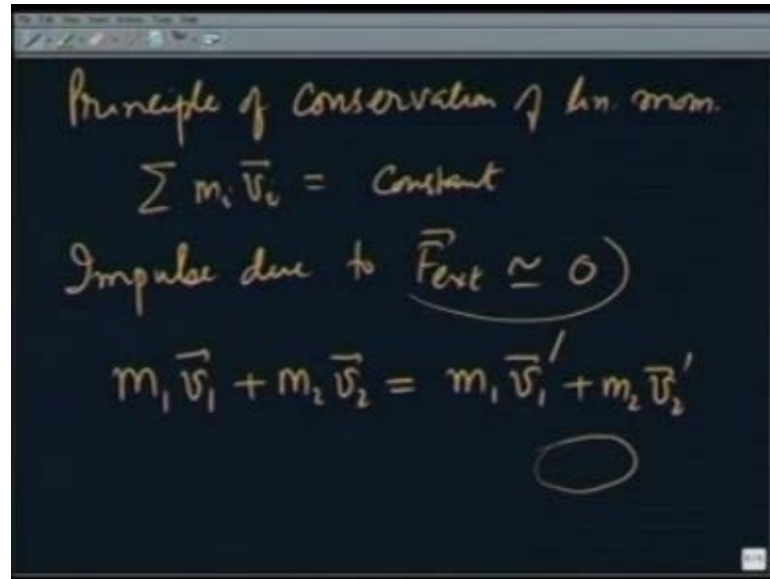 Principle of Conservation of lin. mom.
∑ mᵢ v̄ᵢ = Constant
Impulse due to F⃗ext ≃ 0
m₁ v⃗₁ + m₂ v⃗₂ = m₁ v⃗₁′ + m₂ v⃗₂′